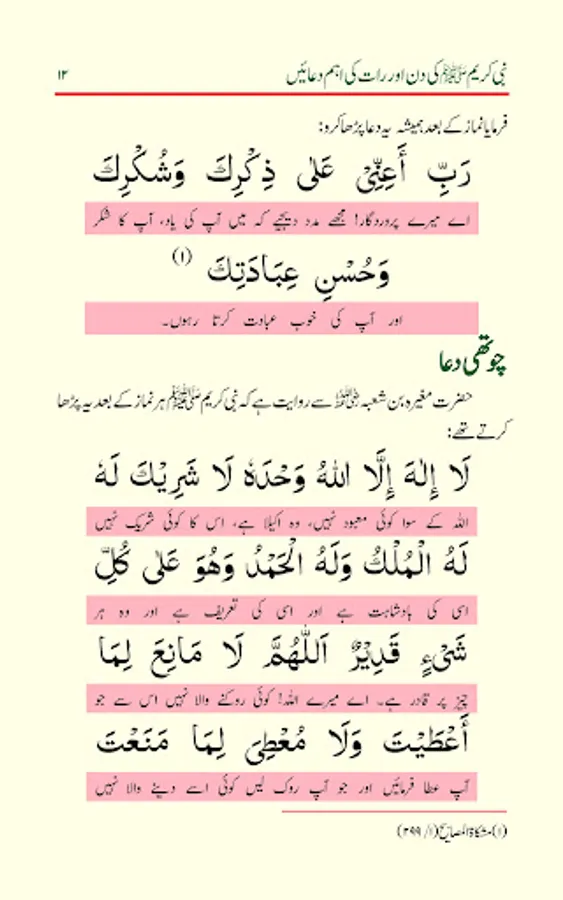 نبی کریم ﷺ کی دن اور رات کی اہم دعائیں ۱۲
فرمایا نماز کے بعد ہمیشہ یہ دعا پڑھا کرو:
رَبِّ أَعِنِّيْ عَلٰى ذِكْرِكَ وَشُكْرِكَ
اے میرے پروردگار! مجھے مدد دیجیے کہ میں آپ کی یاد، آپ کا شکر
وَحُسْنِ عِبَادَتِكَ (۱)
اور آپ کی خوب عبادت کرتا رہوں۔
چوتھی دعا
حضرت مغیرہ بن شعبہ رضی اللہ عنہ سے روایت ہے کہ نبی کریم ﷺ ہر نماز کے بعد یہ پڑھا
کرتے تھے:
لَا إِلٰهَ إِلَّا اللهُ وَحْدَهٗ لَا شَرِيْكَ لَهٗ
اللہ کے سوا کوئی معبود نہیں، وہ اکیلا ہے، اس کا کوئی شریک نہیں
لَهُ الْمُلْكُ وَلَهُ الْحَمْدُ وَهُوَ عَلٰى كُلِّ
اسی کی بادشاہت ہے اور اسی کی تعریف ہے اور وہ ہر
شَيْءٍ قَدِيْرٌ اَللّٰهُمَّ لَا مَانِعَ لِمَا
چیز پر قادر ہے۔ اے میرے اللہ! کوئی روکنے والا نہیں اس سے جو
أَعْطَيْتَ وَلَا مُعْطِيَ لِمَا مَنَعْتَ
آپ عطا فرمائیں اور جو آپ روک لیں کوئی اسے دینے والا نہیں
(۱) مشکاۃ المصابیح (۱/ ۲۹۹)